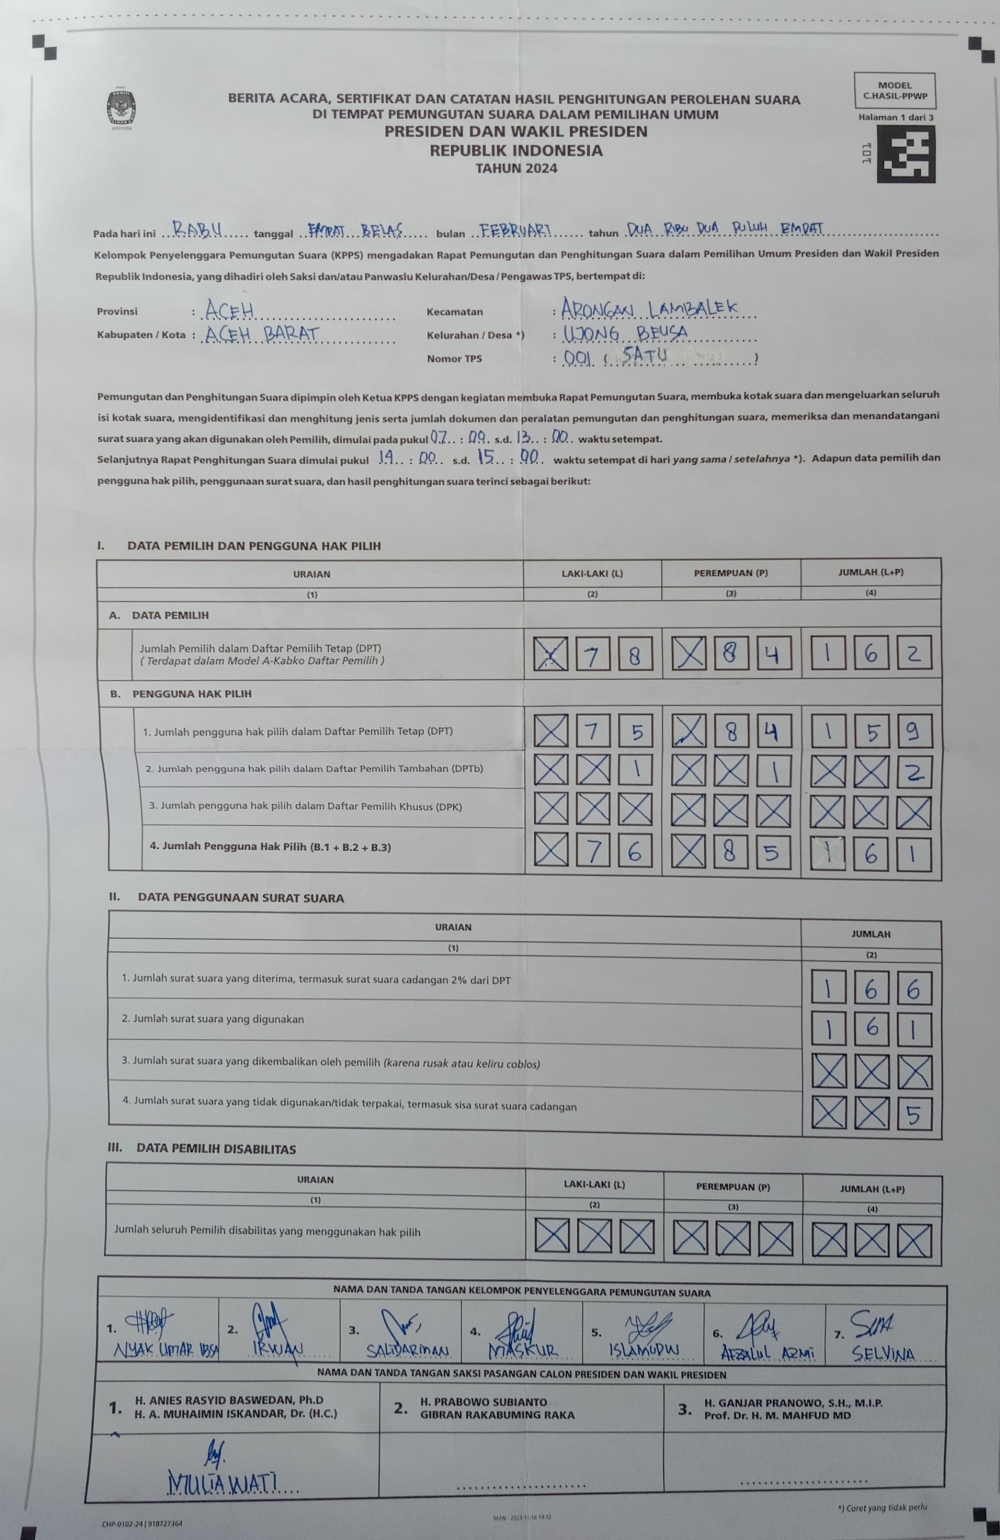 MODEL
C.HASIL-PPWP
Halaman 1 dari 3
101
BERITA ACARA, SERTIFIKAT DAN CATATAN HASIL PENGHITUNGAN PEROLEHAN SUARA
DI TEMPAT PEMUNGUTAN SUARA DALAM PEMILIHAN UMUM
PRESIDEN DAN WAKIL PRESIDEN
REPUBLIK INDONESIA
TAHUN 2024
Pada hari ini RABU tanggal EMPAT BELAS bulan FEBRUARI tahun DUA RIBU DUA PULUH EMPAT
Kelompok Penyelenggara Pemungutan Suara (KPPS) mengadakan Rapat Pemungutan dan Penghitungan Suara dalam Pemilihan Umum Presiden dan Wakil Presiden
Republik Indonesia, yang dihadiri oleh Saksi dan/atau Panwaslu Kelurahan/Desa / Pengawas TPS, bertempat di:
Provinsi : ACEH Kecamatan : ARONGAN LAMBALEK
Kabupaten / Kota : ACEH BARAT Kelurahan / Desa *) : UJONG BEUSA
Nomor TPS : 001 ( SATU )
Pemungutan dan Penghitungan Suara dipimpin oleh Ketua KPPS dengan kegiatan membuka Rapat Pemungutan Suara, membuka kotak suara dan mengeluarkan seluruh
isi kotak suara, mengidentifikasi dan menghitung jenis serta jumlah dokumen dan peralatan pemungutan dan penghitungan suara, memeriksa dan menandatangani
surat suara yang akan digunakan oleh Pemilih, dimulai pada pukul 07 : 00 s.d. 13 : 00 waktu setempat.
Selanjutnya Rapat Penghitungan Suara dimulai pukul 14 : 00 s.d. 15 : 00 waktu setempat di hari yang sama / setelahnya *). Adapun data pemilih dan
pengguna hak pilih, penggunaan surat suara, dan hasil penghitungan suara terinci sebagai berikut:
I. DATA PEMILIH DAN PENGGUNA HAK PILIH
URAIAN LAKI-LAKI (L) PEREMPUAN (P) JUMLAH (L+P)
(1) (2) (3) (4)
A. DATA PEMILIH
Jumlah Pemilih dalam Daftar Pemilih Tetap (DPT)
( Terdapat dalam Model A-Kabko Daftar Pemilih ) X 7 8 X 8 4 1 6 2
B. PENGGUNA HAK PILIH
1. Jumlah pengguna hak pilih dalam Daftar Pemilih Tetap (DPT) X 7 5 X 8 4 1 5 9
2. Jumlah pengguna hak pilih dalam Daftar Pemilih Tambahan (DPTb) X X 1 X X 1 X X 2
3. Jumlah pengguna hak pilih dalam Daftar Pemilih Khusus (DPK) X X X X X X X X X
4. Jumlah Pengguna Hak Pilih (B.1 + B.2 + B.3) X 7 6 X 8 5 1 6 1
II. DATA PENGGUNAAN SURAT SUARA
URAIAN JUMLAH
(1) (2)
1. Jumlah surat suara yang diterima, termasuk surat suara cadangan 2% dari DPT 1 6 6
2. Jumlah surat suara yang digunakan 1 6 1
3. Jumlah surat suara yang dikembalikan oleh pemilih (karena rusak atau keliru coblos) X X X
4. Jumlah surat suara yang tidak digunakan/tidak terpakai, termasuk sisa surat suara cadangan X X 5
III. DATA PEMILIH DISABILITAS
URAIAN LAKI-LAKI (L) PEREMPUAN (P) JUMLAH (L+P)
(1) (2) (3) (4)
Jumlah seluruh Pemilih disabilitas yang menggunakan hak pilih X X X X X X X X X
NAMA DAN TANDA TANGAN KELOMPOK PENYELENGGARA PEMUNGUTAN SUARA
1. 2. 3. 4. 5. 6. 7.
NYAK UMAR IRWAN SALIDARMAN MASKUR ISLAMUDIN AFZALUL AZMI SELVINA
NAMA DAN TANDA TANGAN SAKSI PASANGAN CALON PRESIDEN DAN WAKIL PRESIDEN
1. H. ANIES RASYID BASWEDAN, Ph.D
H. A. MUHAIMIN ISKANDAR, Dr. (H.C.)
2. H. PRABOWO SUBIANTO
GIBRAN RAKABUMING RAKA
3. H. GANJAR PRANOWO, S.H., M.I.P.
Prof. Dr. H. M. MAHFUD MD
MULIAWATI
*) Coret yang tidak perlu
CHP-0102-24 | 918727364